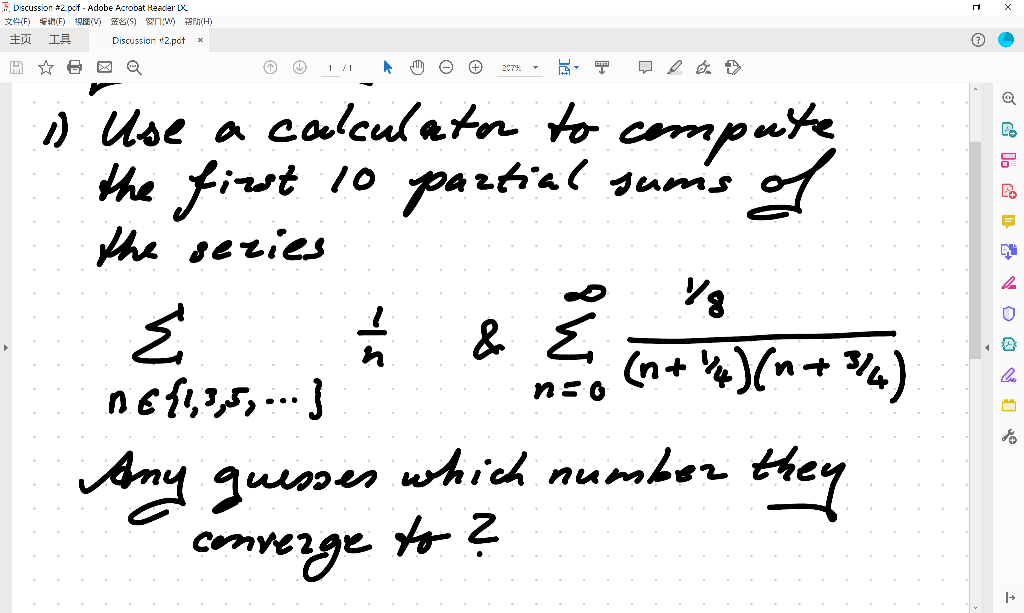 Discussion #2.pdf - Adobe Acrobat Reader DC
文件(F) 编辑(E) 视图(V) 签名(S) 窗口(W) 帮助(H)
主页 工具 Discussion #2.pdf ×
1 / 1 207%
1) Use a calculator to compute
the first 10 partial sums of
the series
∑ n∈{1,3,5,...} 1/n & ∑ n=0 ∞ 1/8 / (n+1/4)(n+3/4)
Any guesses which number they
converge to?